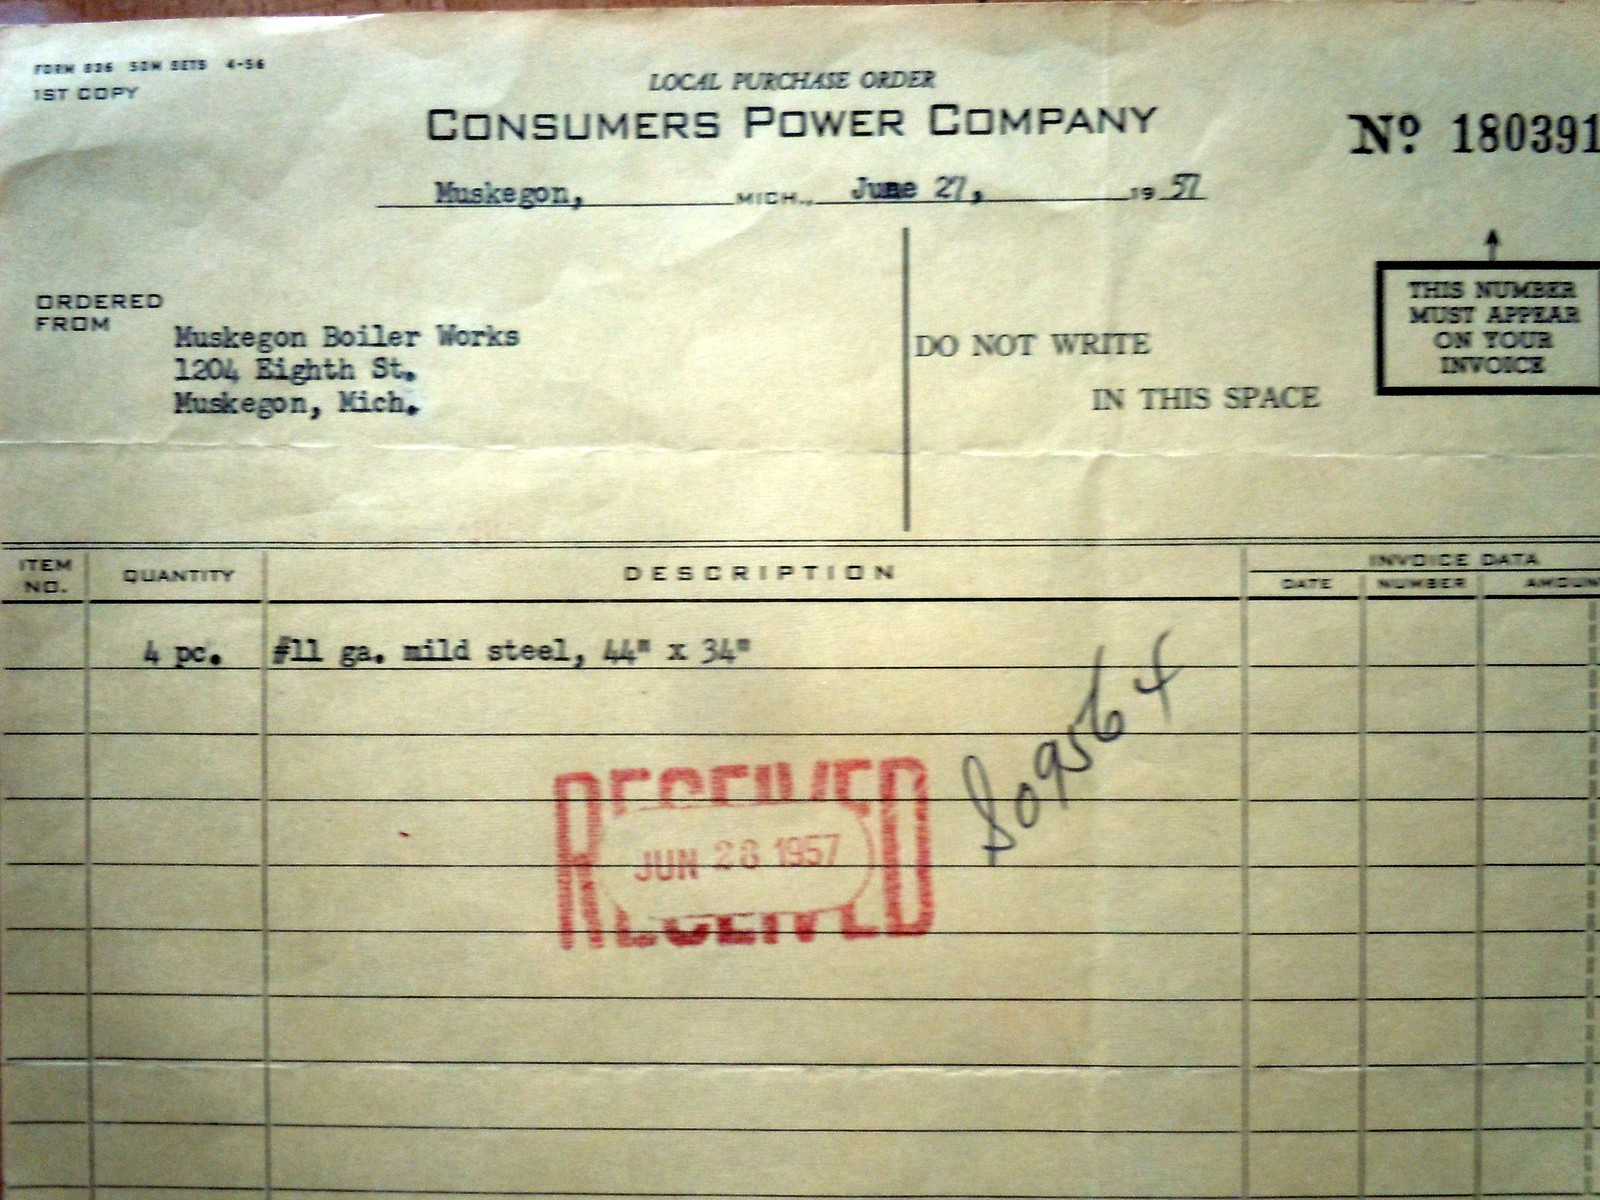 FORM 836 50M SETS 4-56
1ST COPY
LOCAL PURCHASE ORDER
CONSUMERS POWER COMPANY
Nº 180391
Muskegon, MICH., June 27, 19 57
THIS NUMBER
MUST APPEAR
ON YOUR
INVOICE
ORDERED
FROM
Muskegon Boiler Works
1204 Eighth St.
Muskegon, Mich.
DO NOT WRITE
IN THIS SPACE
ITEM
NO.
QUANTITY
DESCRIPTION
INVOICE DATA
DATE
NUMBER
AMOUN
4 pc.
#11 ga. mild steel, 44" x 34"
RECEIVED
JUN 28 1957
RECEIVED